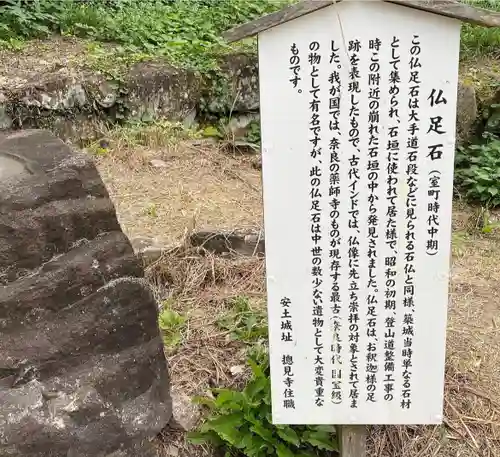 仏足石(室町時代中期)
この仏足石は大手道石段などに見られる石仏と同様、築城当時単なる石材
として集められ、石垣に使われて居た様で、昭和の初期、登山道整備工事の
時この附近の崩れた石垣の中から発見されました。仏足石は、お釈迦様の足
跡を表現したもので、古代インドでは、仏像に先立ち崇拝の対象とされて居ま
した。我が国では、奈良の薬師寺のものが現存する最古(奈良時代・国宝級)
の物として有名ですが、此の仏足石は中世の数少ない遺物として大変貴重な
ものです。
安土城址 摠見寺住職